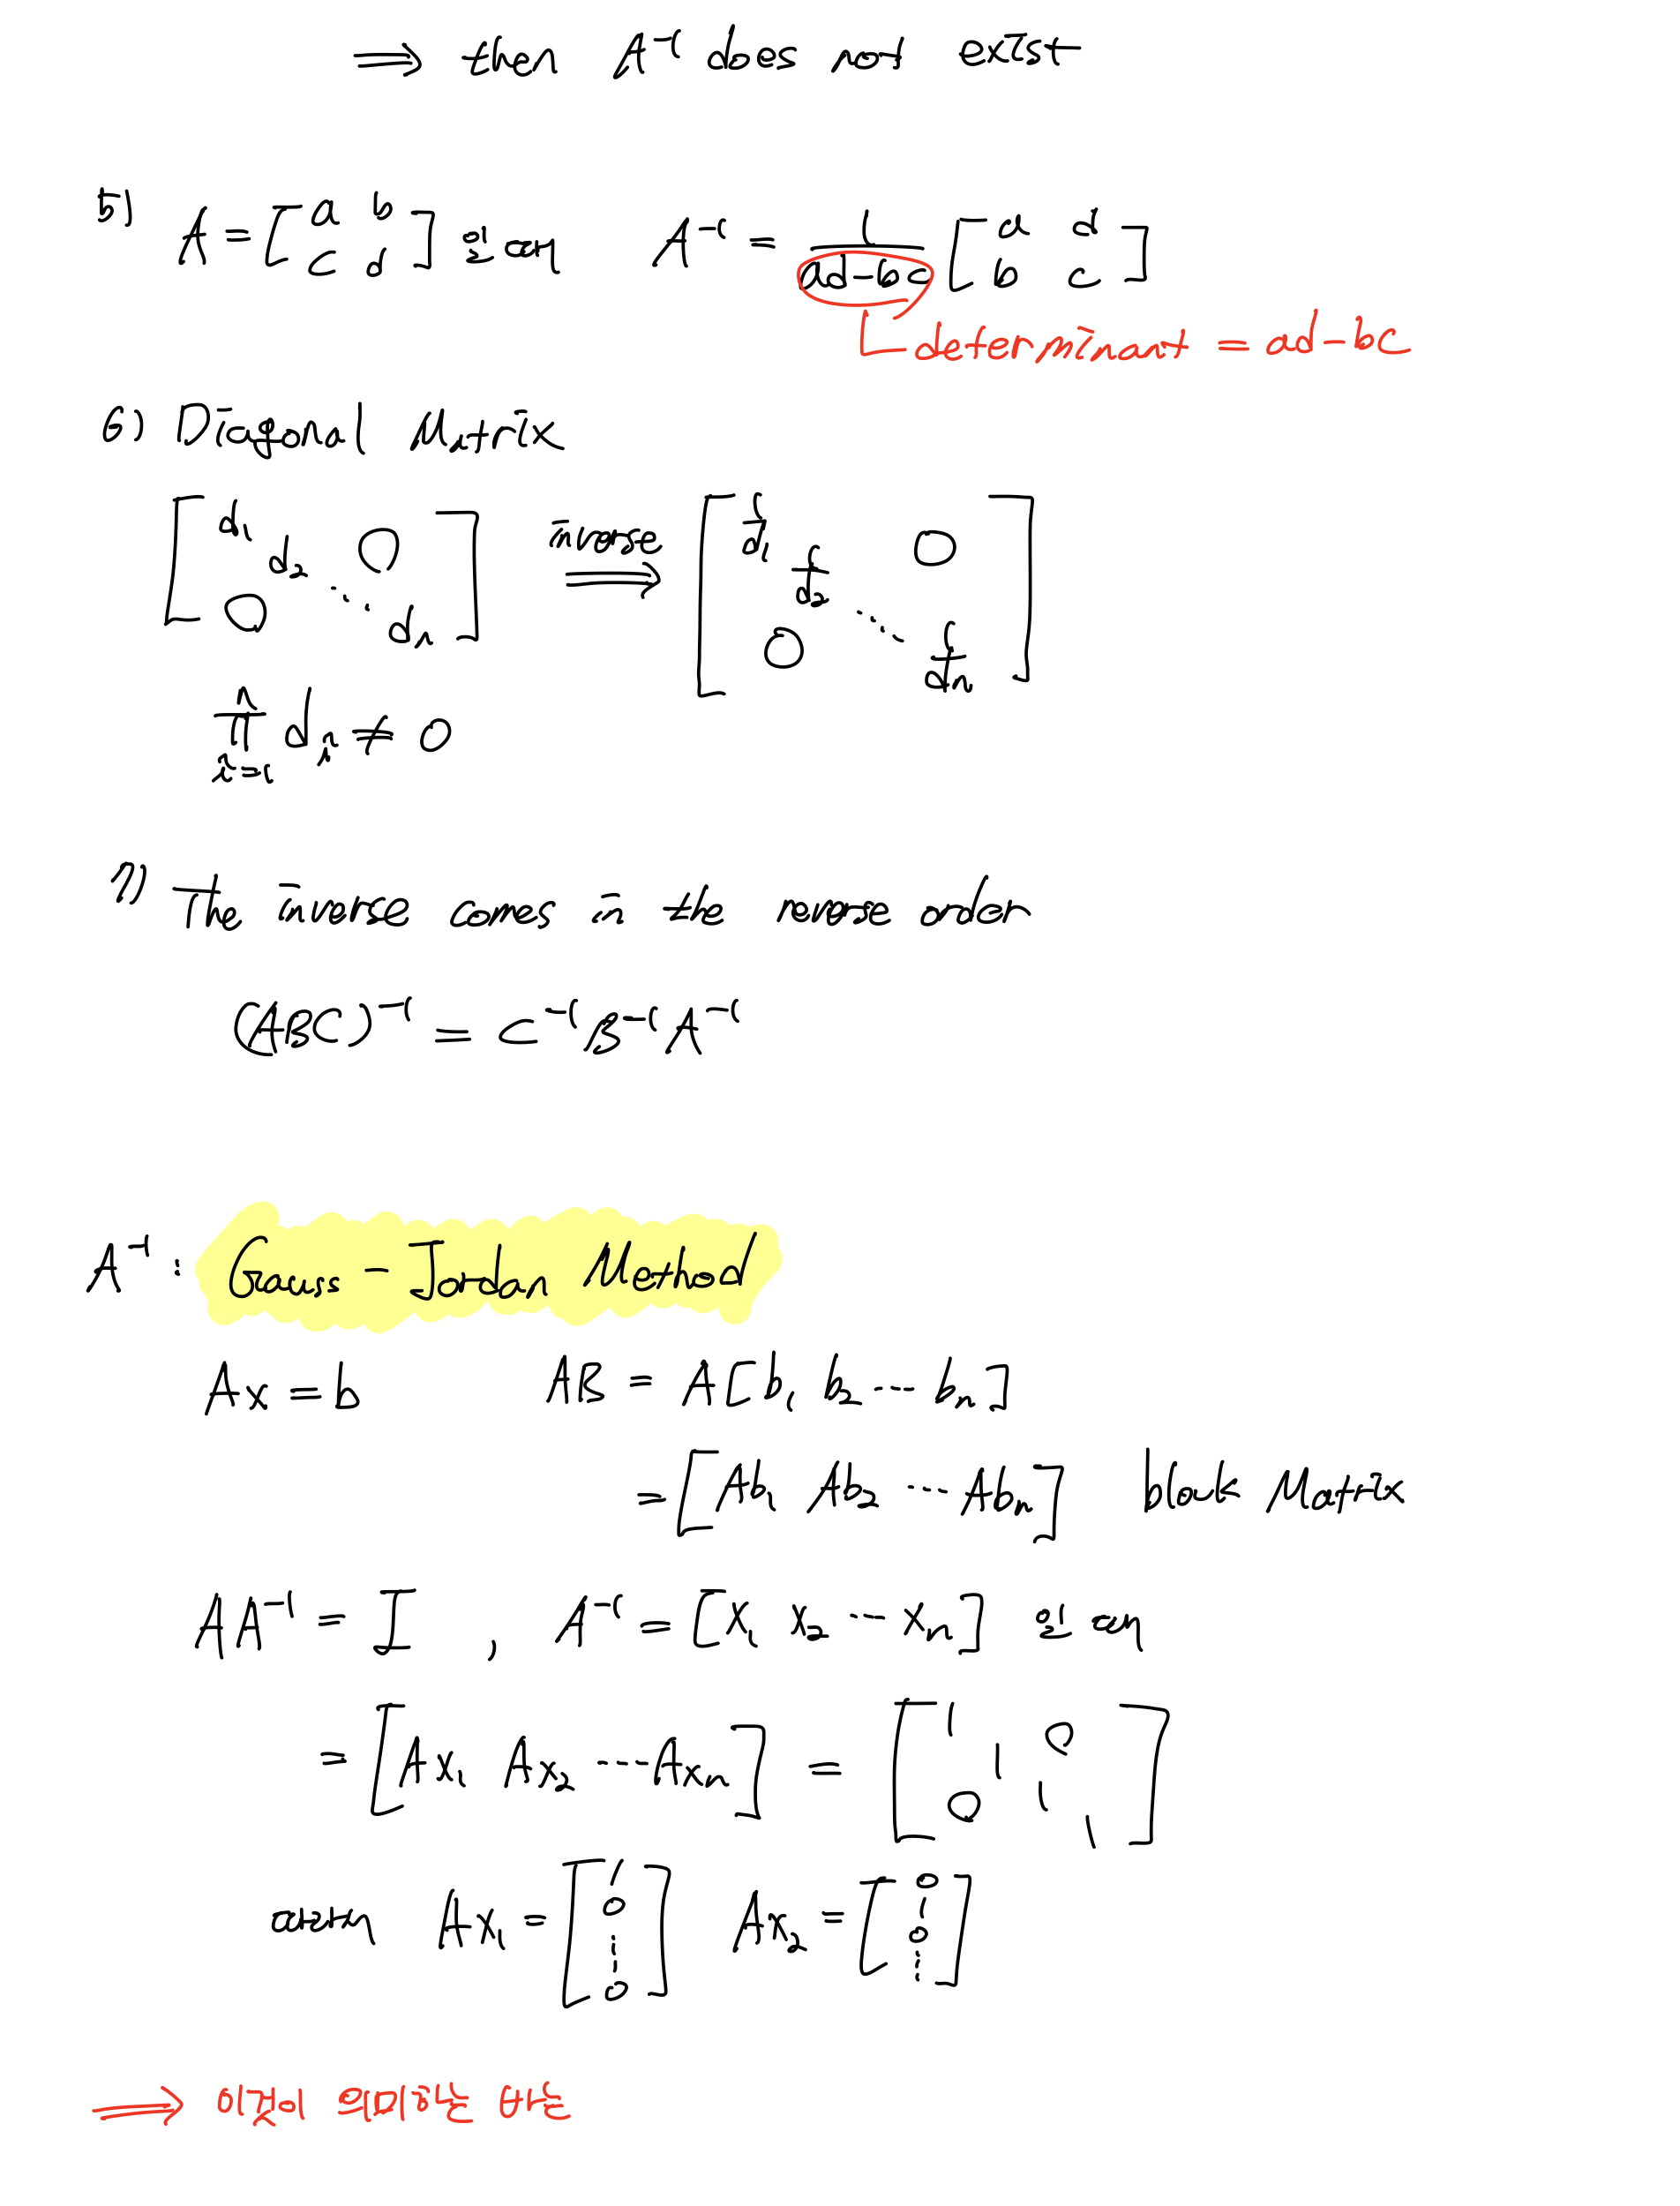 ⟹ then A⁻¹ does not exist
5) A = [a b; c d] 일 때 A⁻¹ = 1/(ad-bc) [a d; b c]
determinant = ad-bc
6) Diagonal Matrix
[d₁ d₂ ⋱ dₙ 0 0] inverse ⟹ [1/d₁ 1/d₂ ⋱ 1/dₙ 0 0]
∏ᵢ₌₁ⁿ dᵢ ≠ 0
7) The inverse comes in the reverse order
(ABC)⁻¹ = C⁻¹B⁻¹A⁻¹
A⁻¹ : Gauss - Jordan Method
Ax = b AB = A[b₁ b₂ ... bₙ]
= [Ab₁ Ab₂ ... Abₙ] block Matrix
AA⁻¹ = I , A⁻¹ = [x₁ x₂ ... xₙ] 일 때
= [Ax₁ Ax₂ ... Axₙ] = [1 1 1 1 0 0]
Ax₁ = [1 0 ⋮ 0] Ax₂ = [0 1 0 ⋮]
⟹ 이것이 의미하는 바는